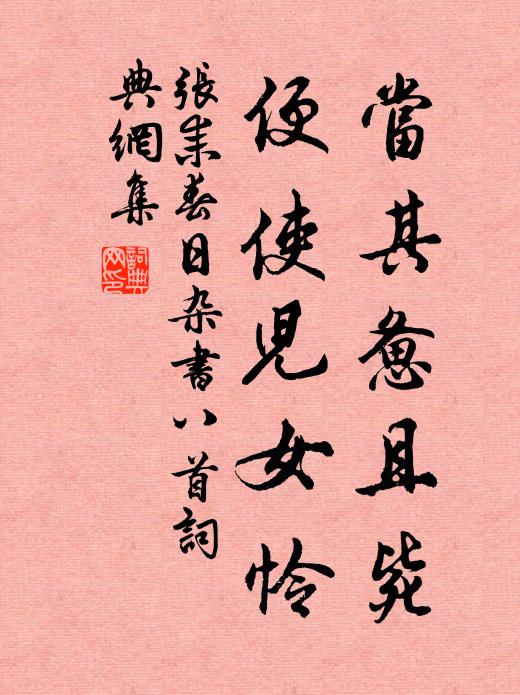 當其惫且毙
便使兒女怜
張耒春日杂書八首詞
典網集
詞典网印